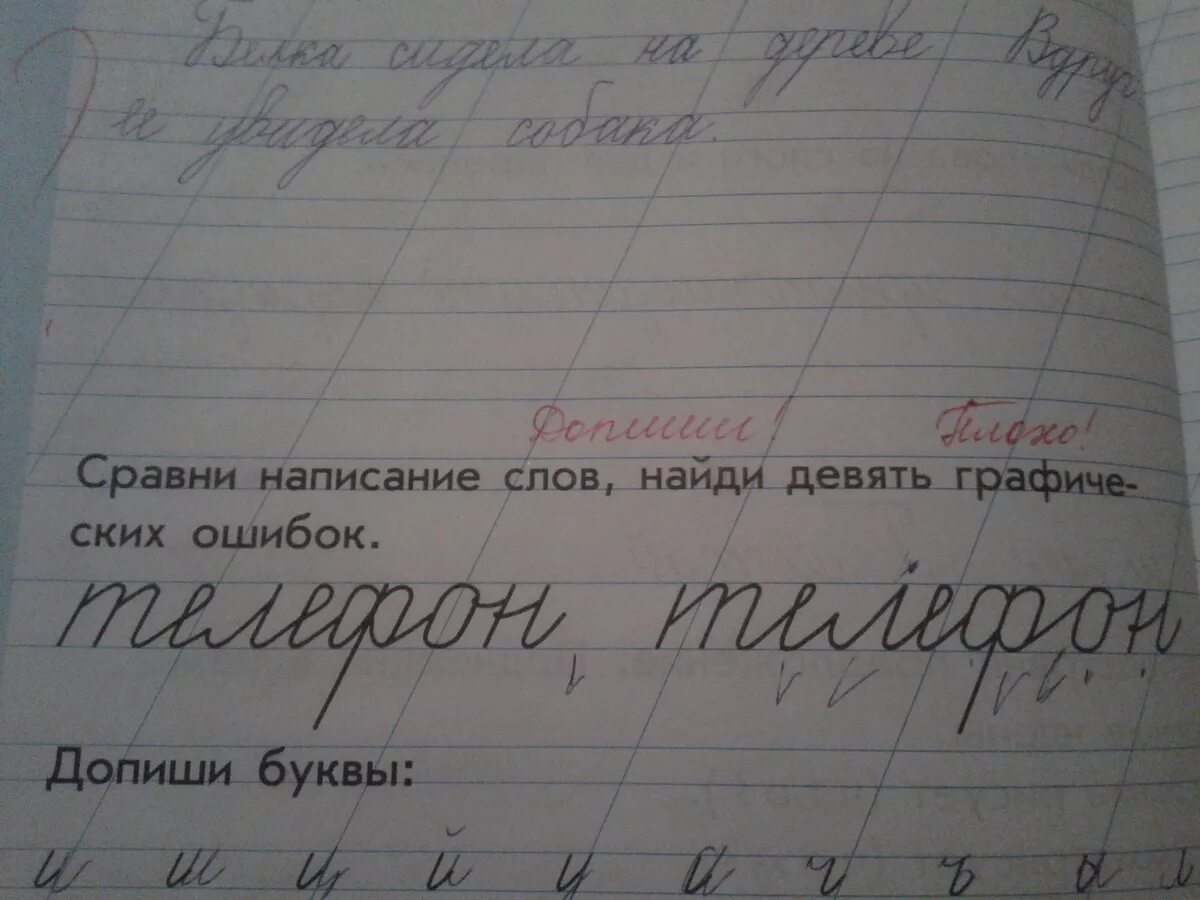 Белка сидела на дереве Вдруг
ее увидела собака.
Допиши! Плохо!
Сравни написание слов, найди девять графиче-
ских ошибок.
телефон телефон
Допиши буквы:
и ш ц й у а ч ъ а